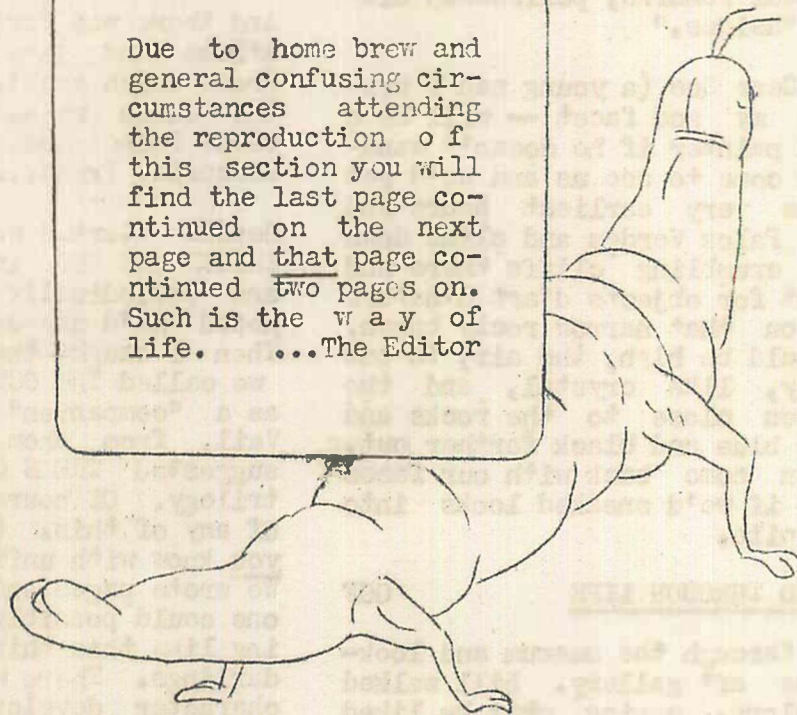 Due to home brew and
general confusing cir-
cumstances attending
the reproduction o f
this section you will
find the last page co-
ntinued on the next
page and that page co-
ntinued two pages on.
Such is the w a y of
life. ...The Editor